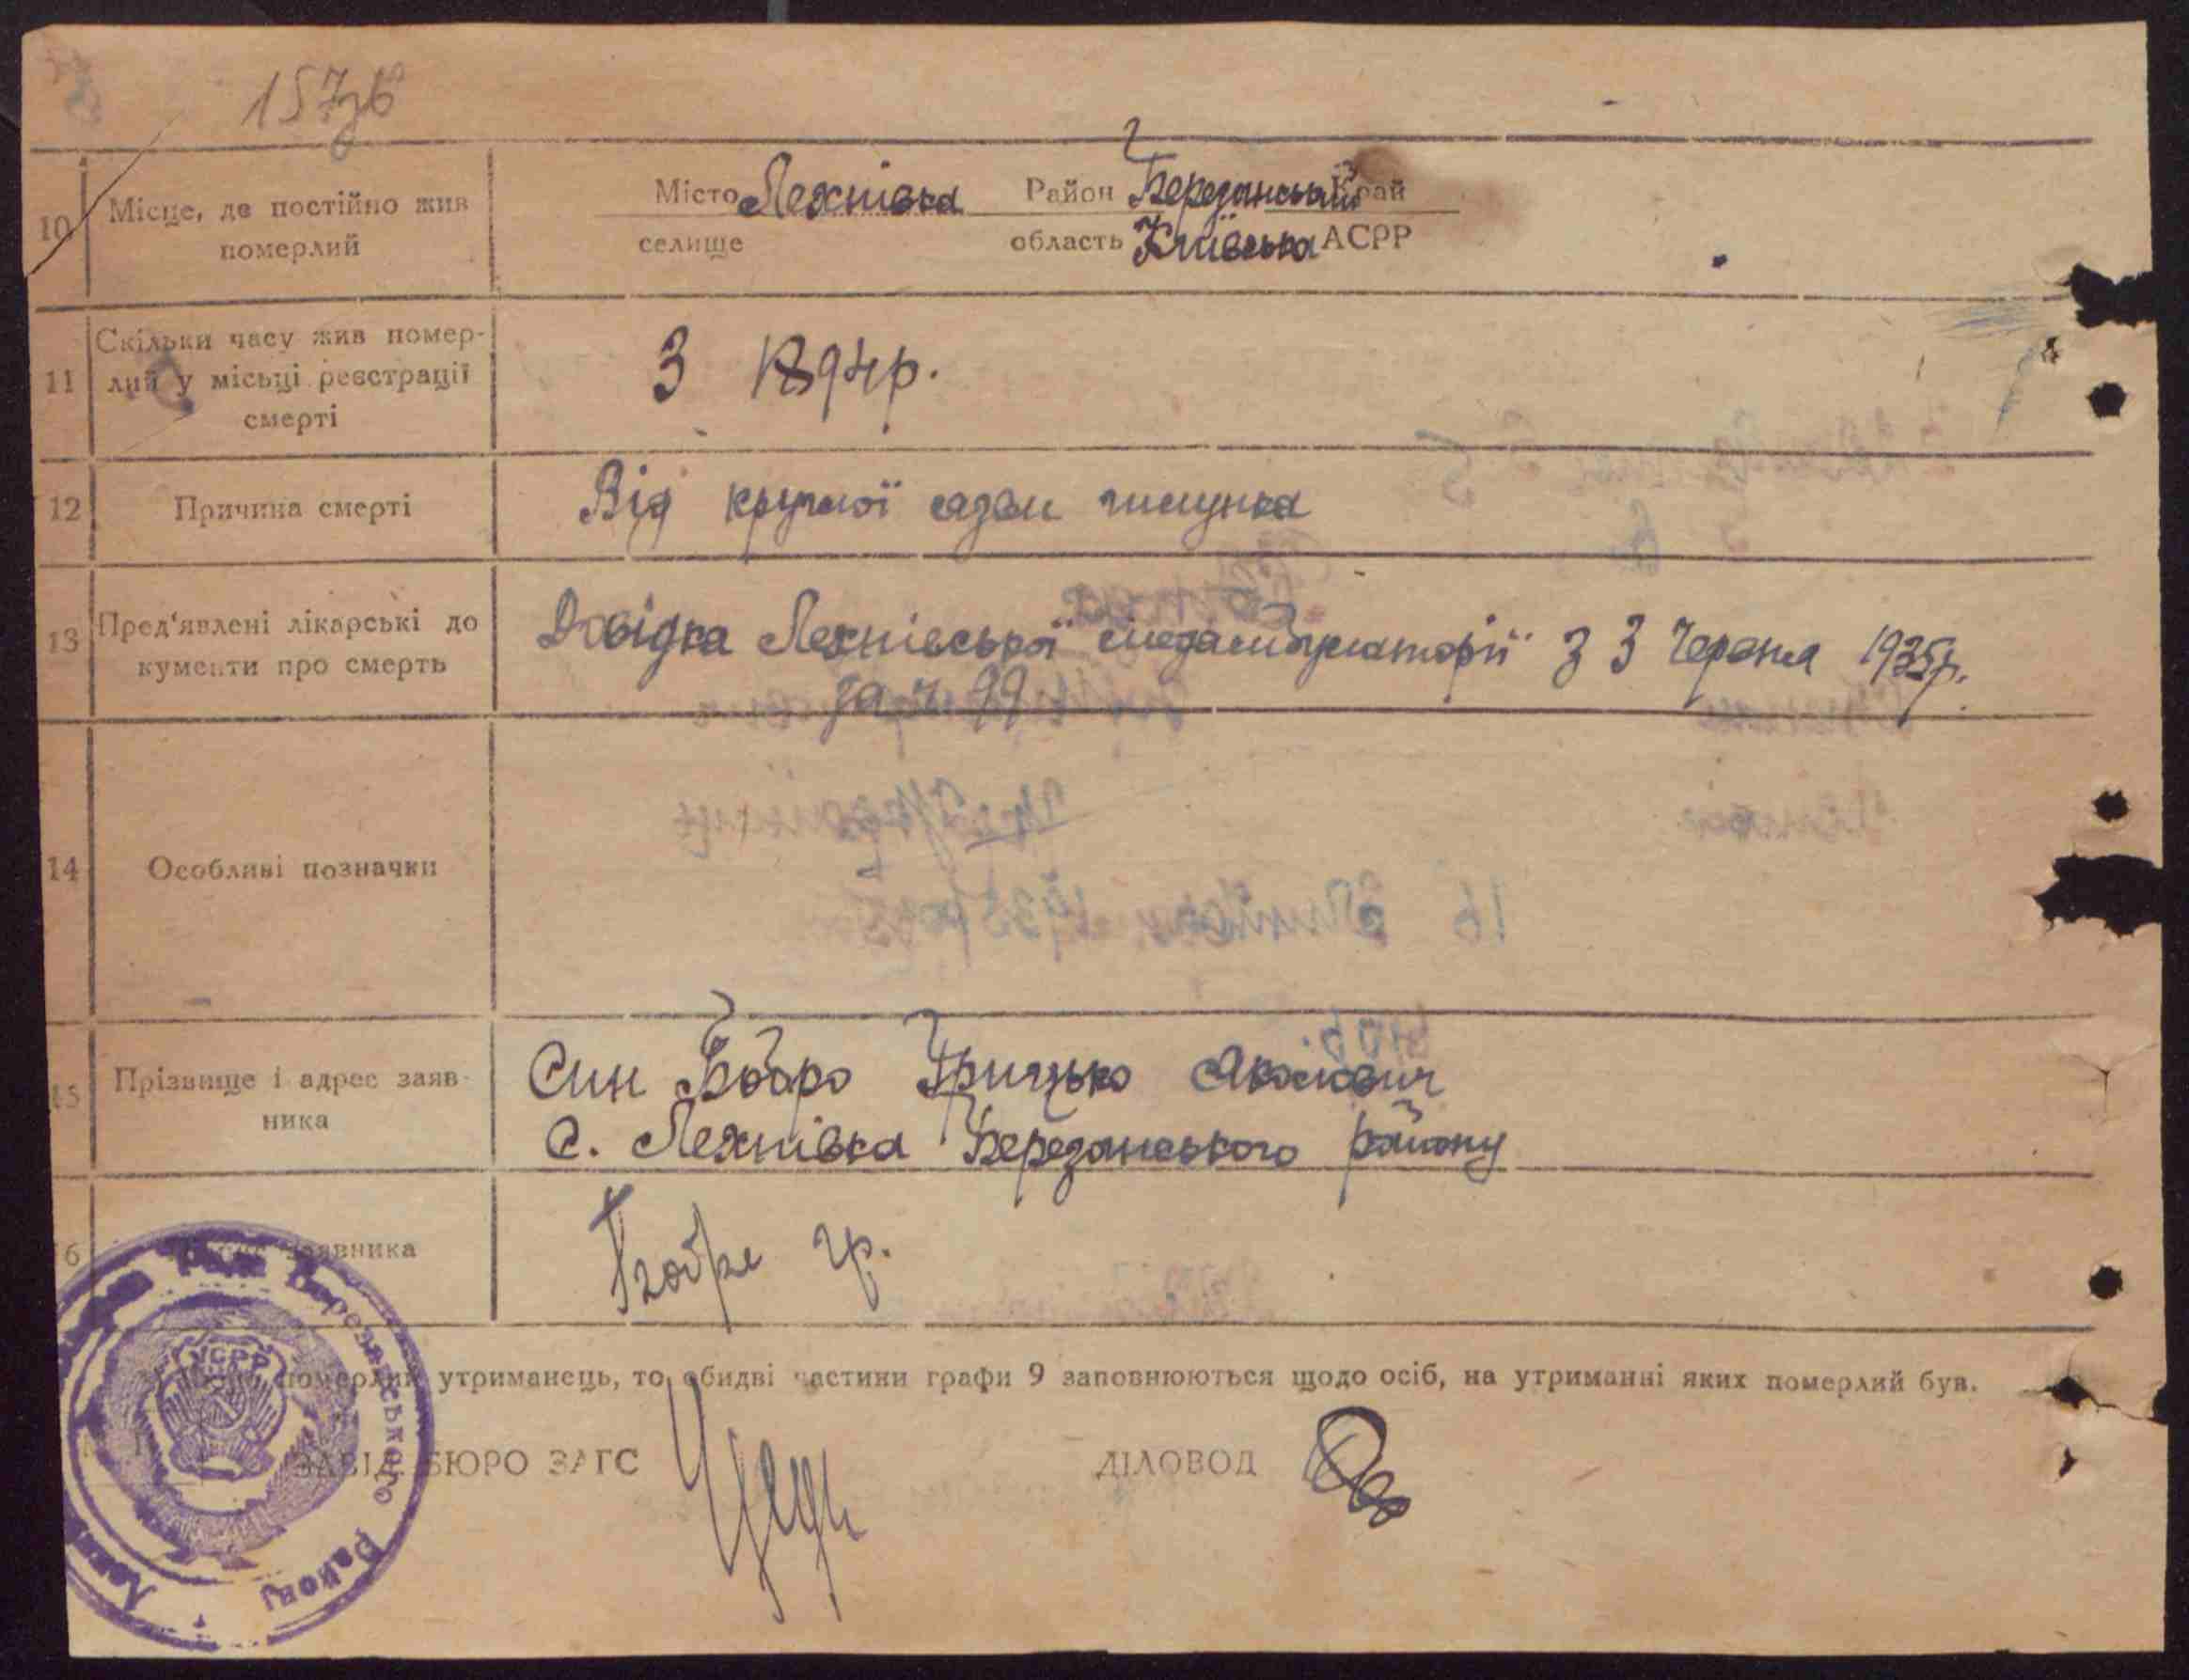 157зв
10 Місце, де постійно жив
померлий
Місто Лехнівка Район Березанський Край
селище область Київська АСРР
11 Скільки часу жив помер-
лий у місьці реєстрації
смерті
З 1894р.
12 Причина смерті
Від круглої язви шлунка
13 Пред'явлені лікарські до
кументи про смерть
Довідка Лехнівської медамбулаторії з 3 Червня 1935р.
за № 99
14 Особливі позначки
15 Прізвище і адрес заяв-
ника
Син Бобро Грицько Якимович
с. Лехнівка Березанського району
6 заявника
Бобро Гр.
померлий утриманець, то обидві частини графи 9 заповнюються щодо осіб, на утриманні яких померлий був.
ЗАВІД. БЮРО ЗАГС ДІЛОВОД
Рада Березанського Району
УСРР